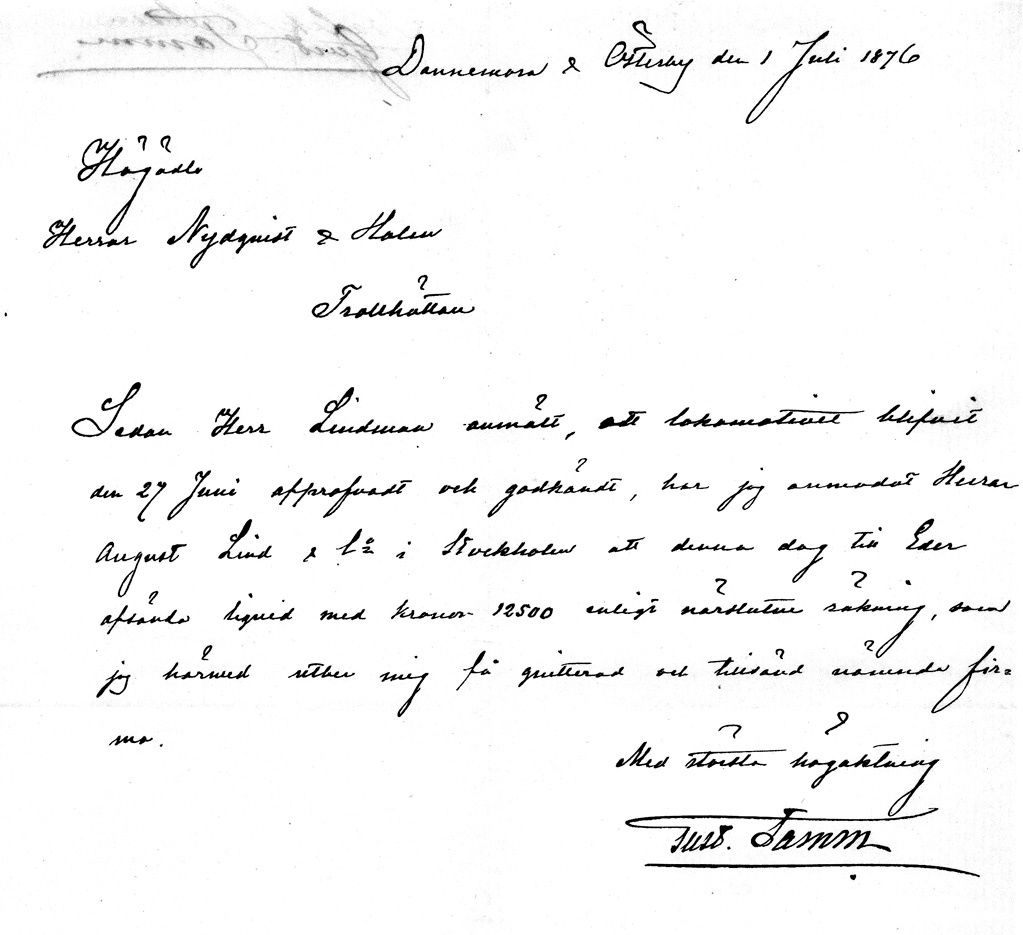 Dannemora & Österby den 1 Juli 1876
Högädle
Herrar Nydqvist & Holm
Trollhättan
Sedan Herr Lindman anmält, att lokomotivet blifvit
den 27 Juni approfvadt och godkändt, har jag anmodat Herrar
August Lind & Co i Stockholm att denna dag till Eder
afsända liqvid med kronor 12500 enligt närslutne räkning, som
jag härmed utber mig få qvitterad och tillsänd nämnda fir=
ma.
Med största högaktning
Gust. Tamm